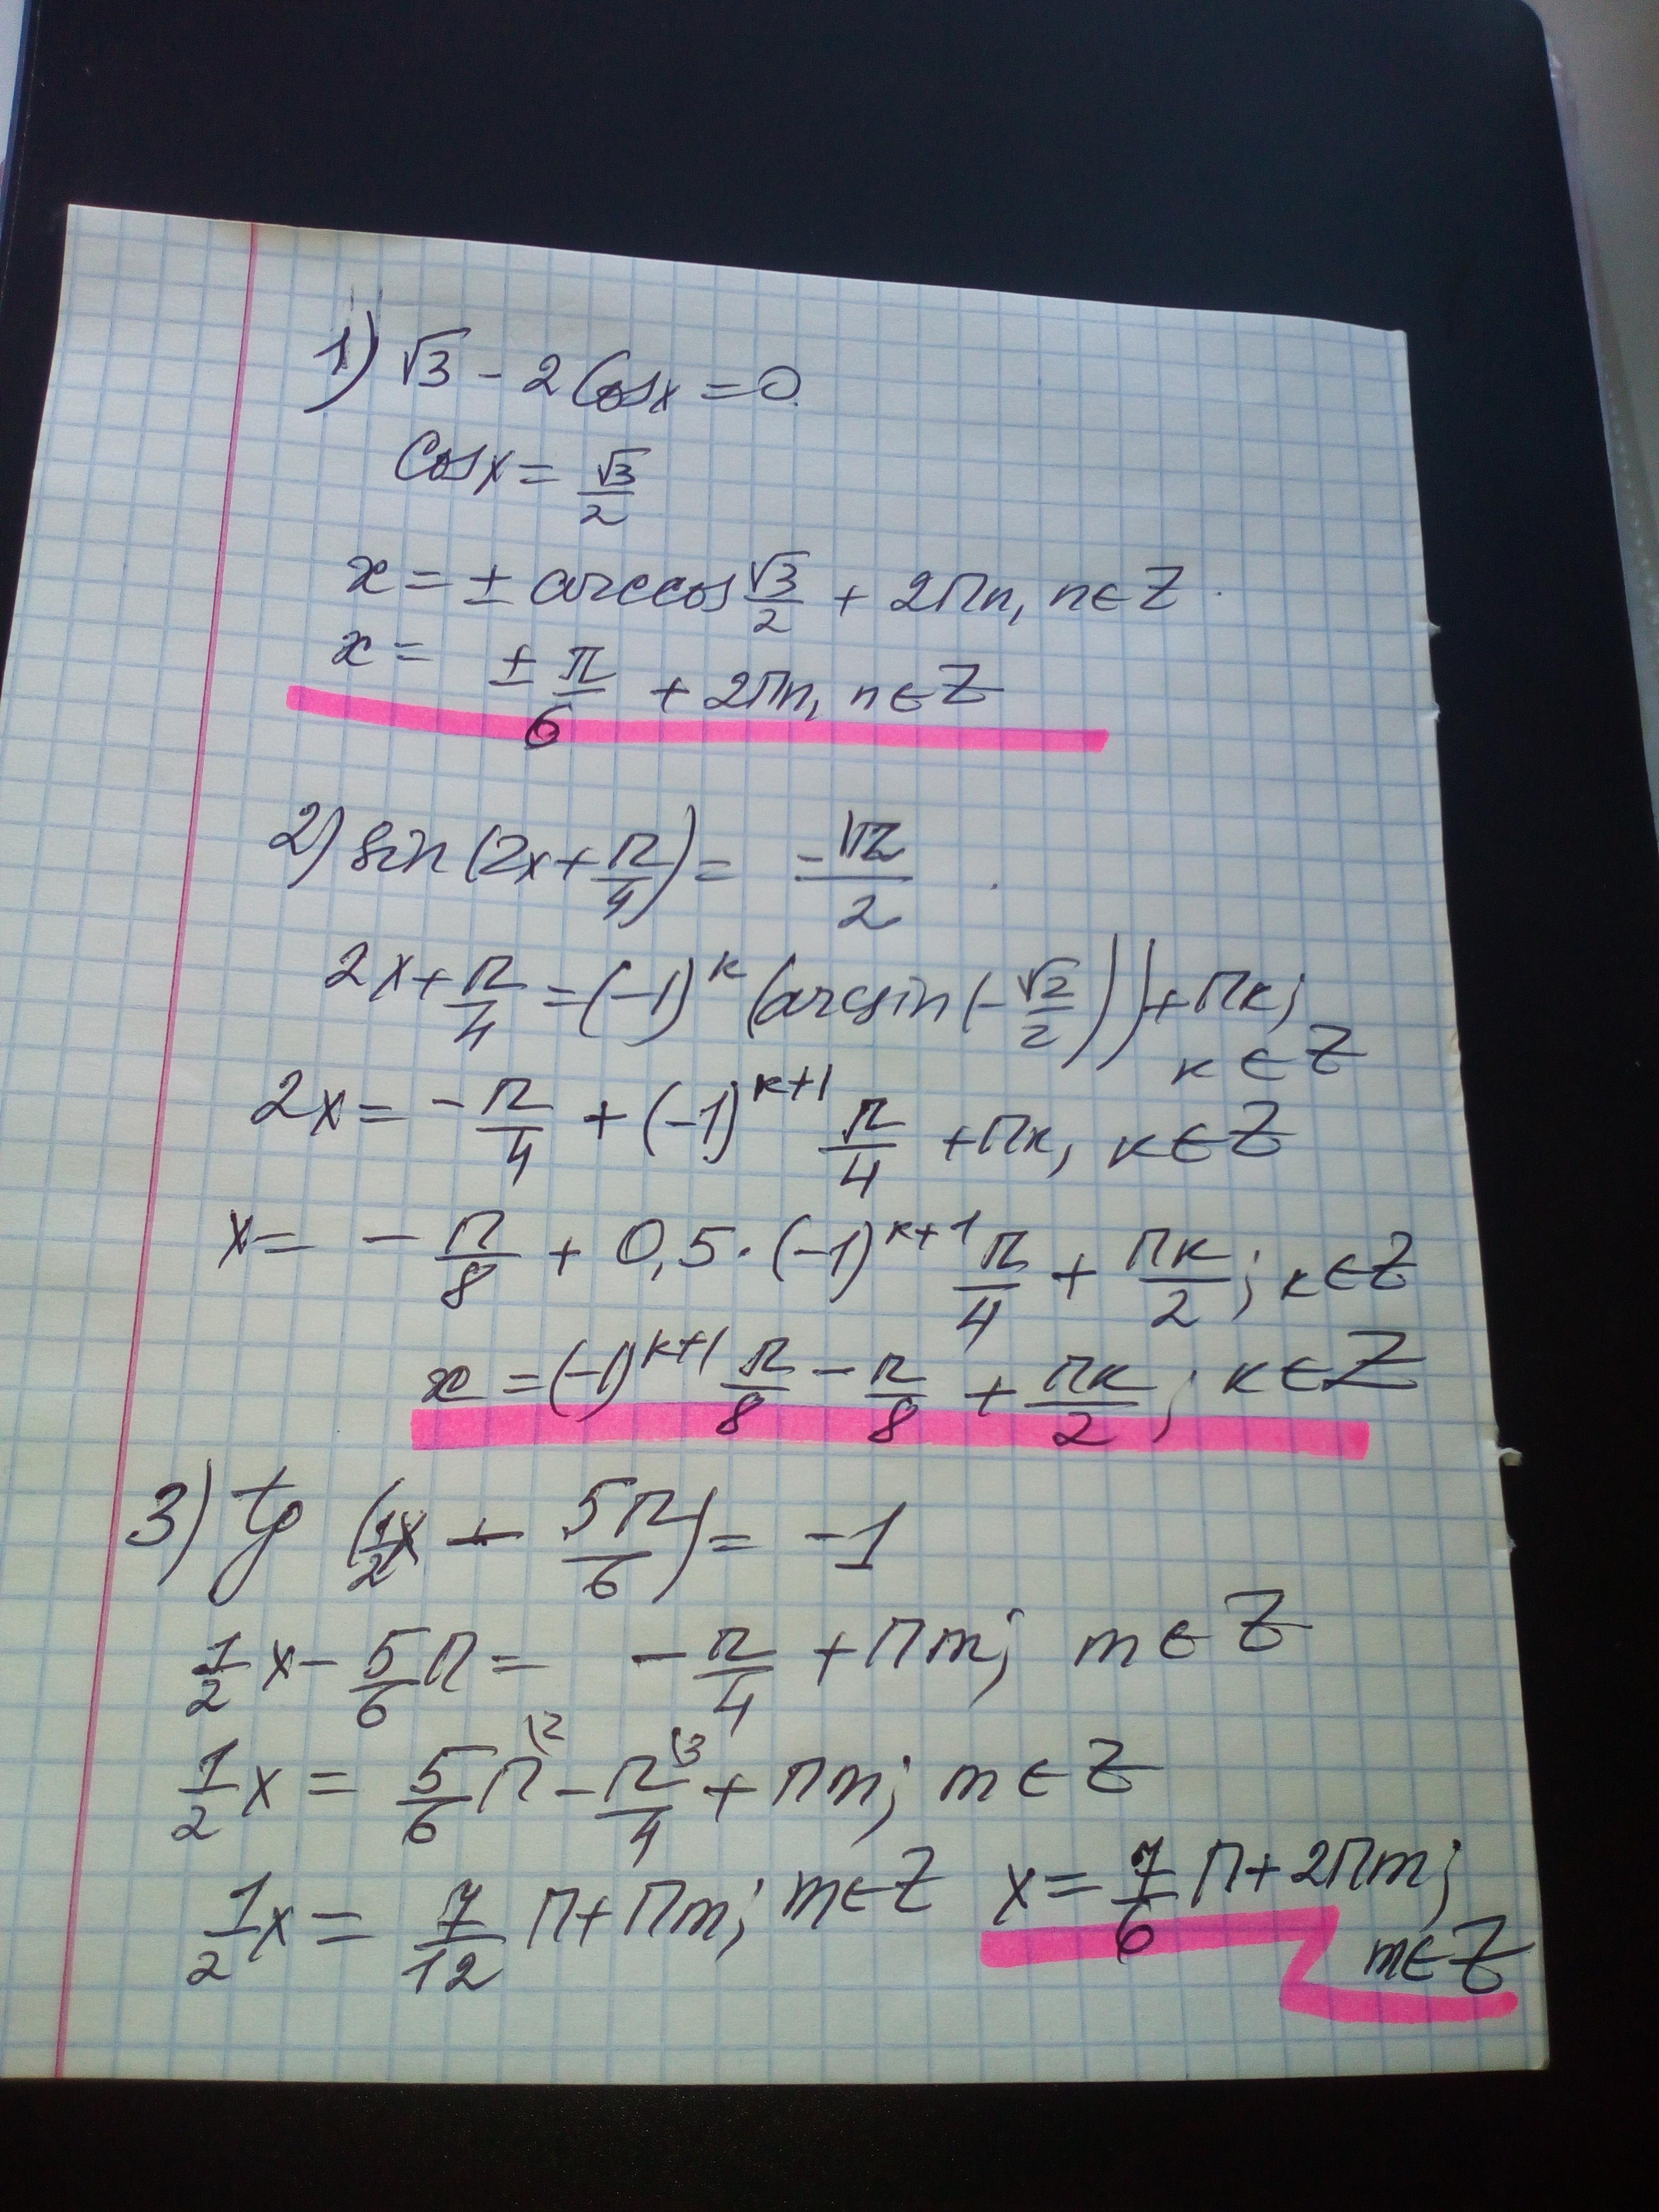 1) √3 - 2 Cosx = 0
Cosx = √3/2
x = ± arccos √3/2 + 2πn, n∈Z
x = ± π/6 + 2πn, n∈Z
2) sin(2x + π/4) = -√2/2
2x + π/4 = (-1)^k (arcsin(-√2/2)) + πk; k∈Z
2x = -π/4 + (-1)^(k+1) π/4 + πk, k∈Z
x = -π/8 + 0,5·(-1)^(k+1) π/4 + πk/2; k∈Z
x = (-1)^(k+1) π/8 - π/8 + πk/2; k∈Z
3) tg (1/2x - 5π/6) = -1
1/2 x - 5/6 π = -π/4 + πm; m∈Z
1/2 x = 5/6 π \2 - π/4 \3 + πm; m∈Z
1/2 x = 7/12 π + πm; m∈Z x = 7/6 π + 2πm; m∈Z